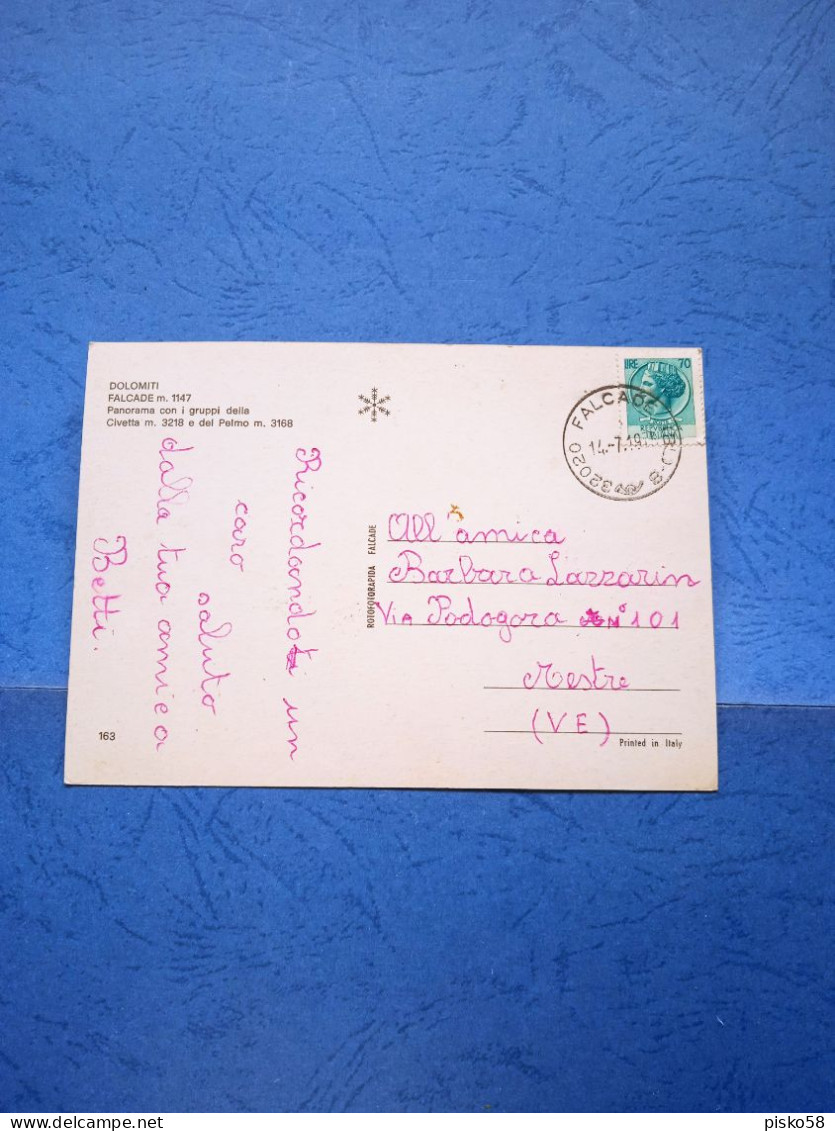 DOLOMITI
FALCADE m. 1147
Panorama con i gruppi della
Civetta m. 3218 e del Pelmo m. 3168
Ricordandoti un
caro
saluto
dalla tua amica
Betti.
163
ROTOFOTORAPIDA FALCADE
LIRE 70
32020 FALCADE
14.-7.19
All'amica
Barbara Lazzarin
Via Podogora N° 101
Mestre
(VE)
Printed in Italy
delcampe.net
pisko58